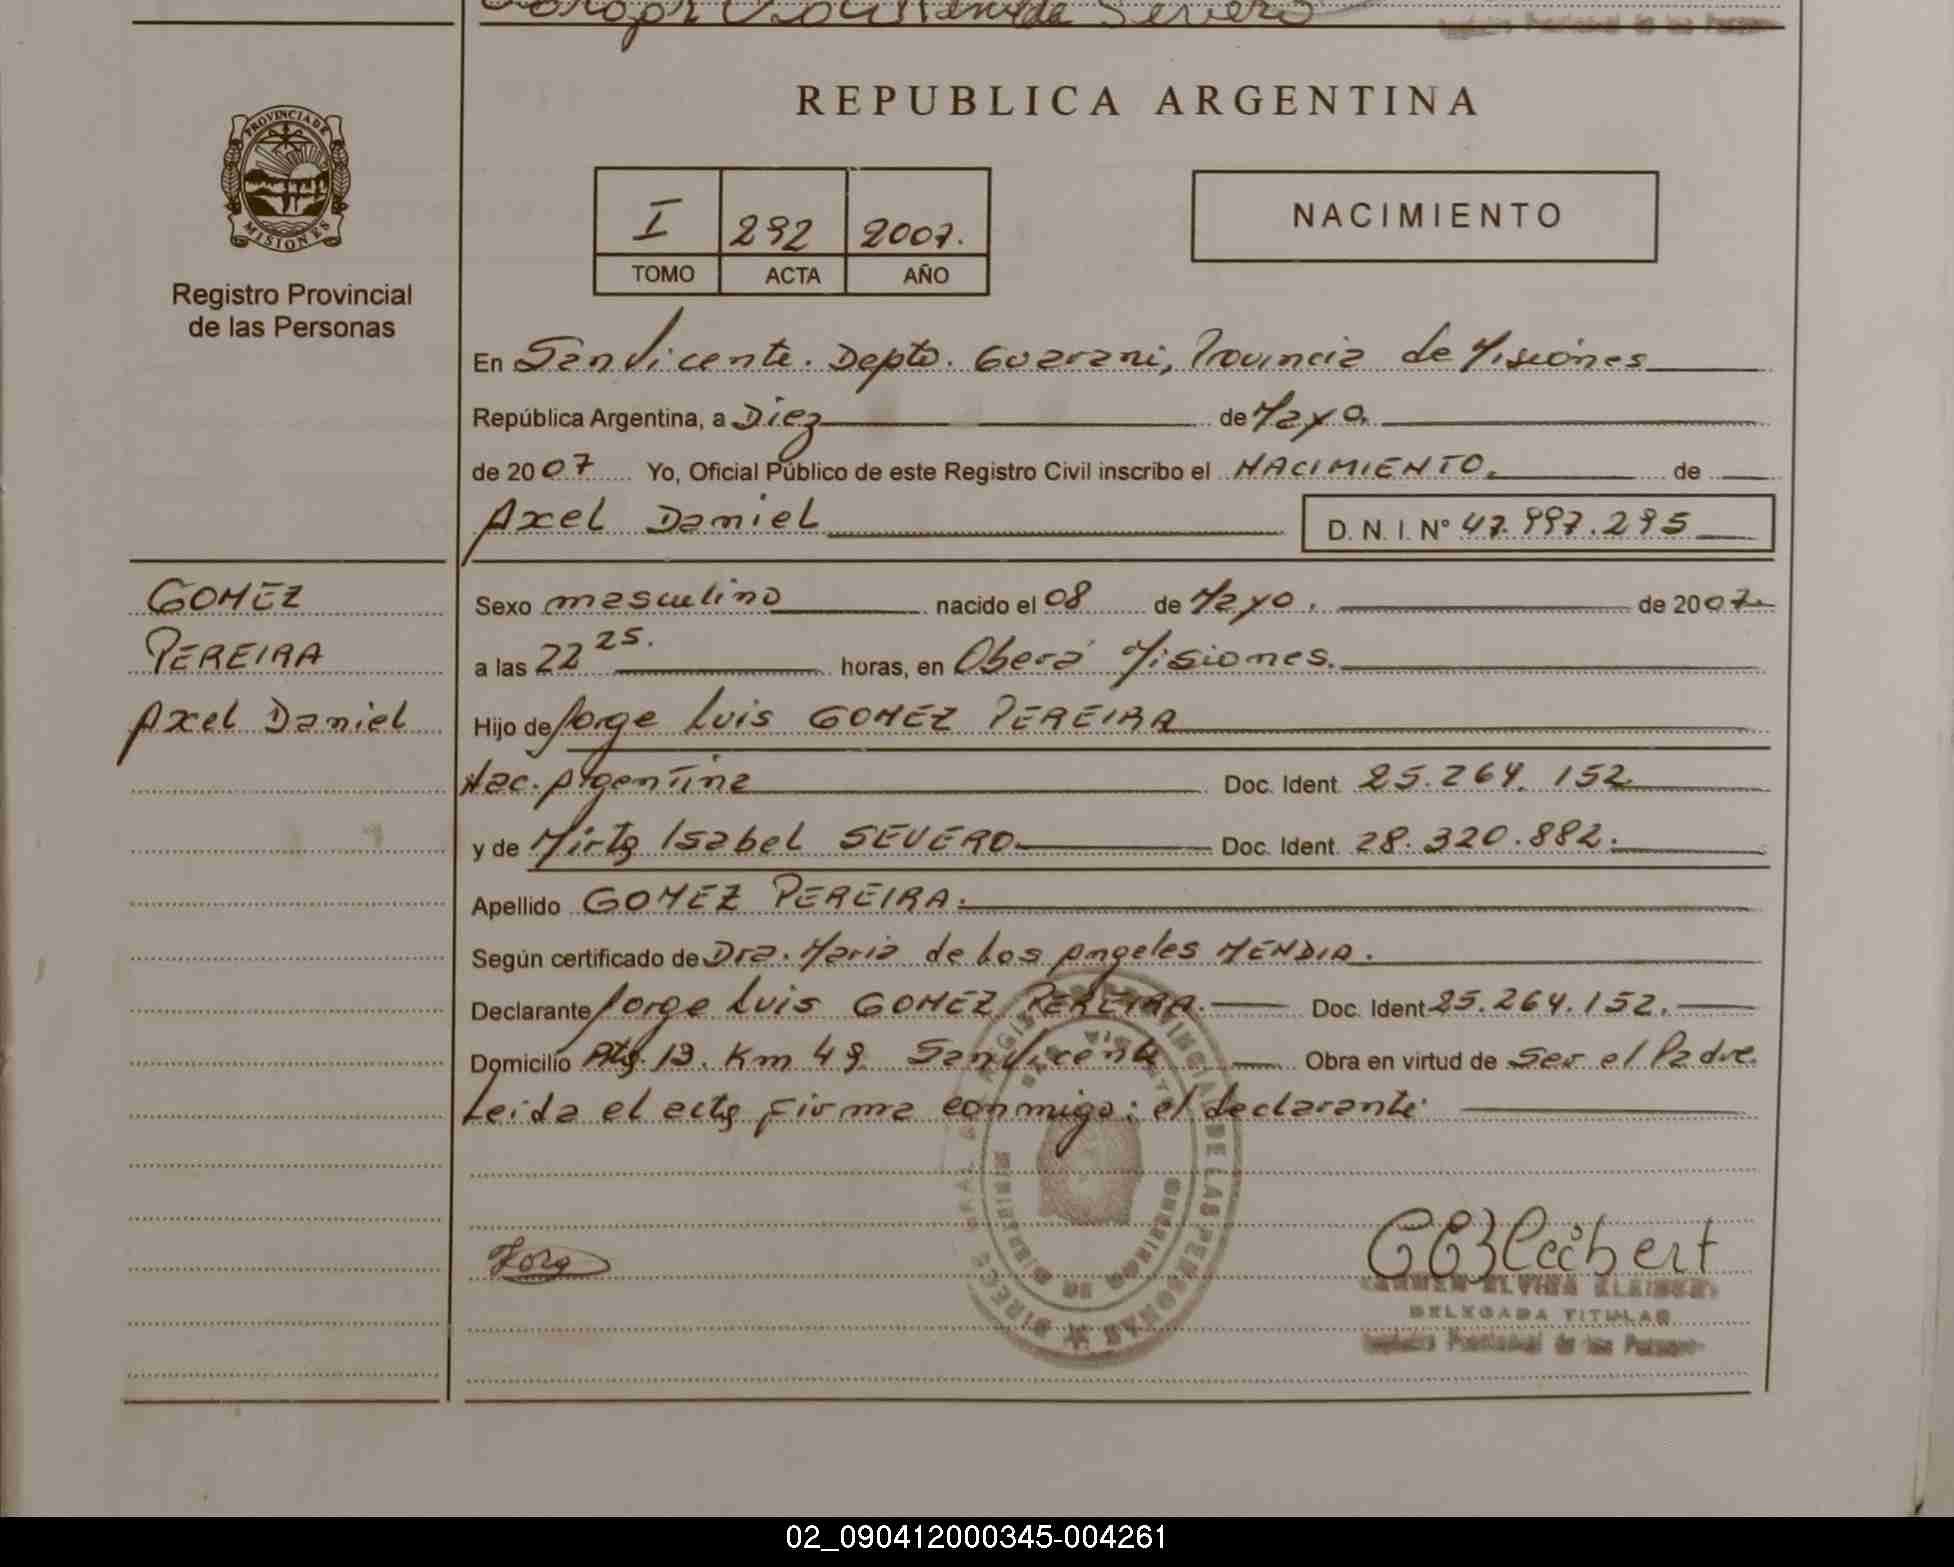 Severo
REPUBLICA ARGENTINA
PROVINCIA DE
MISIONES
Registro Provincial
de las Personas
I 292 2007.
TOMO ACTA AÑO
NACIMIENTO
En San Vicente. Depto. Guarani, Provincia de Misiones
República Argentina, a Diez de Mayo.
de 2007 Yo, Oficial Público de este Registro Civil inscribo el NACIMIENTO. de
Axel Daniel D. N. I. N° 47.997.295
GOMEZ
PEREIRA
Axel Daniel
Sexo masculino nacido el 08 de Mayo. de 2007.
a las 22 25. horas, en Oberá Misiones.
Hijo de Jorge Luis GOMEZ PEREIRA
Nac. Argentina Doc. Ident. 25.264.152
y de Mirta Isabel SEVERO Doc. Ident. 28.320.882.
Apellido GOMEZ PEREIRA.
Según certificado de Dra. Maria de Los Angeles MENDIA.
Declarante Jorge Luis GOMEZ PEREIRA. Doc. Ident 25.264.152.
Domicilio Km 49 San Vicente Obra en virtud de Ser el Padre.
Leida el acta firma conmigo: el declarante
DELEGADA TITULAR
02_090412000345-004261